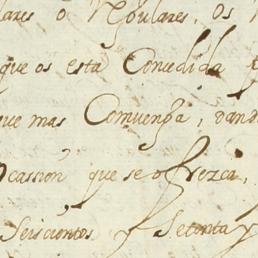 ares o Regulares, os
que os está Concedida
ue mas Comuenga, dand
Ocassion que se ofrezca,
Seiscientos y Setenta y